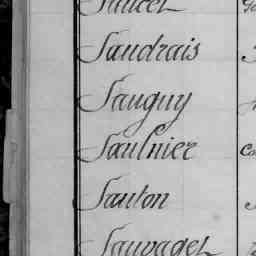 Saudrais
Sauguy
Saulnier
Sauton
Sauvaget